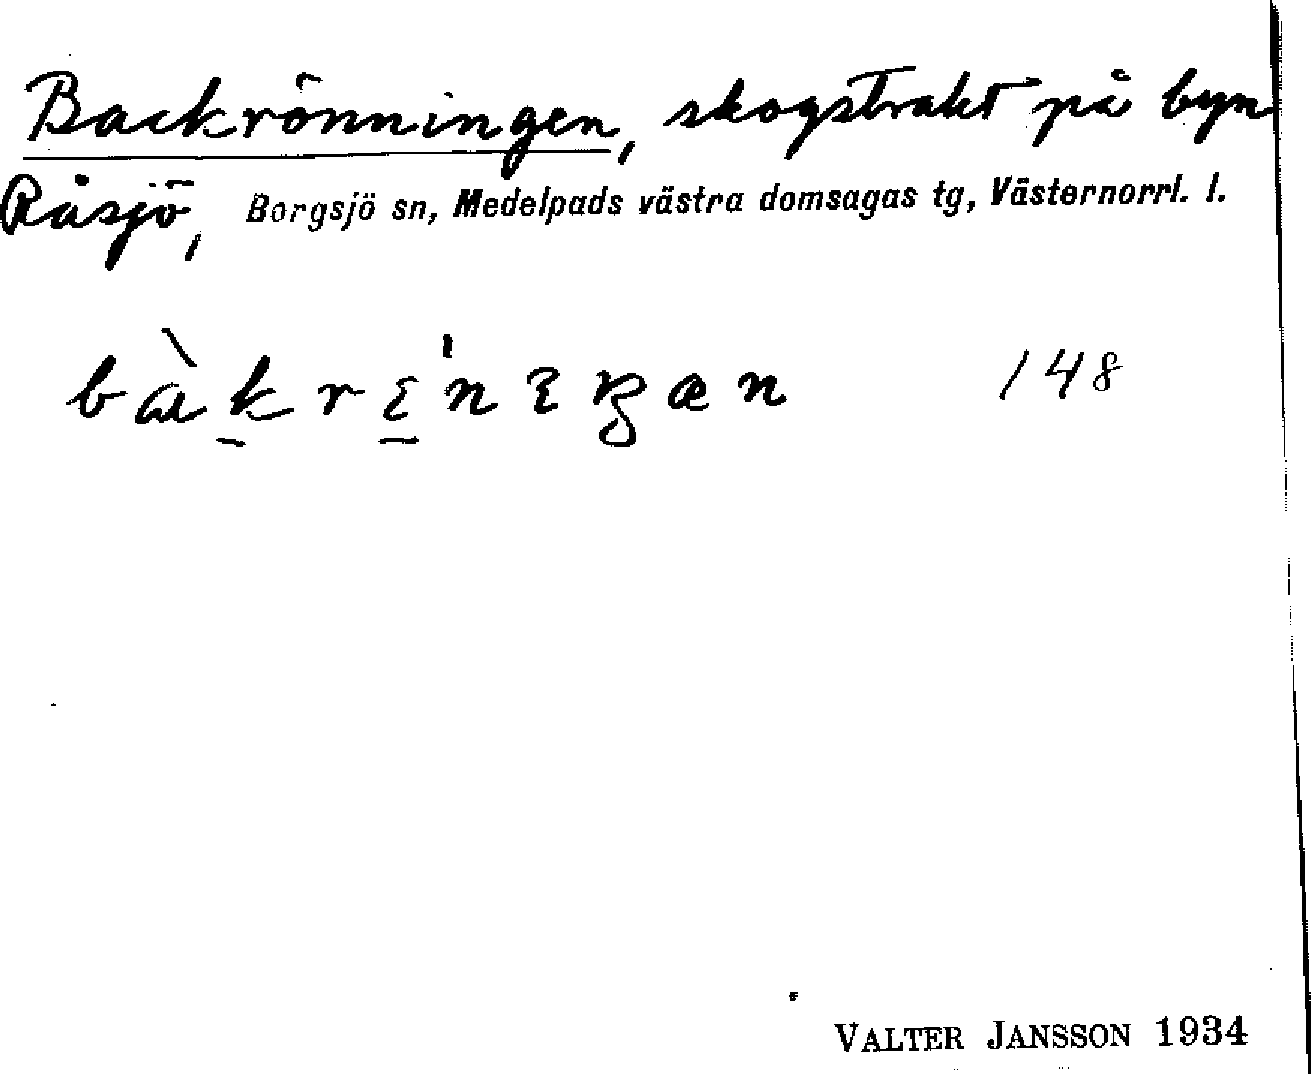 Backrönningen, skogstrakt på byn
Råsjö, Borgsjö sn, Medelpads västra domsagas tg, Västernorrl. l.
148
VALTER JANSSON 1934